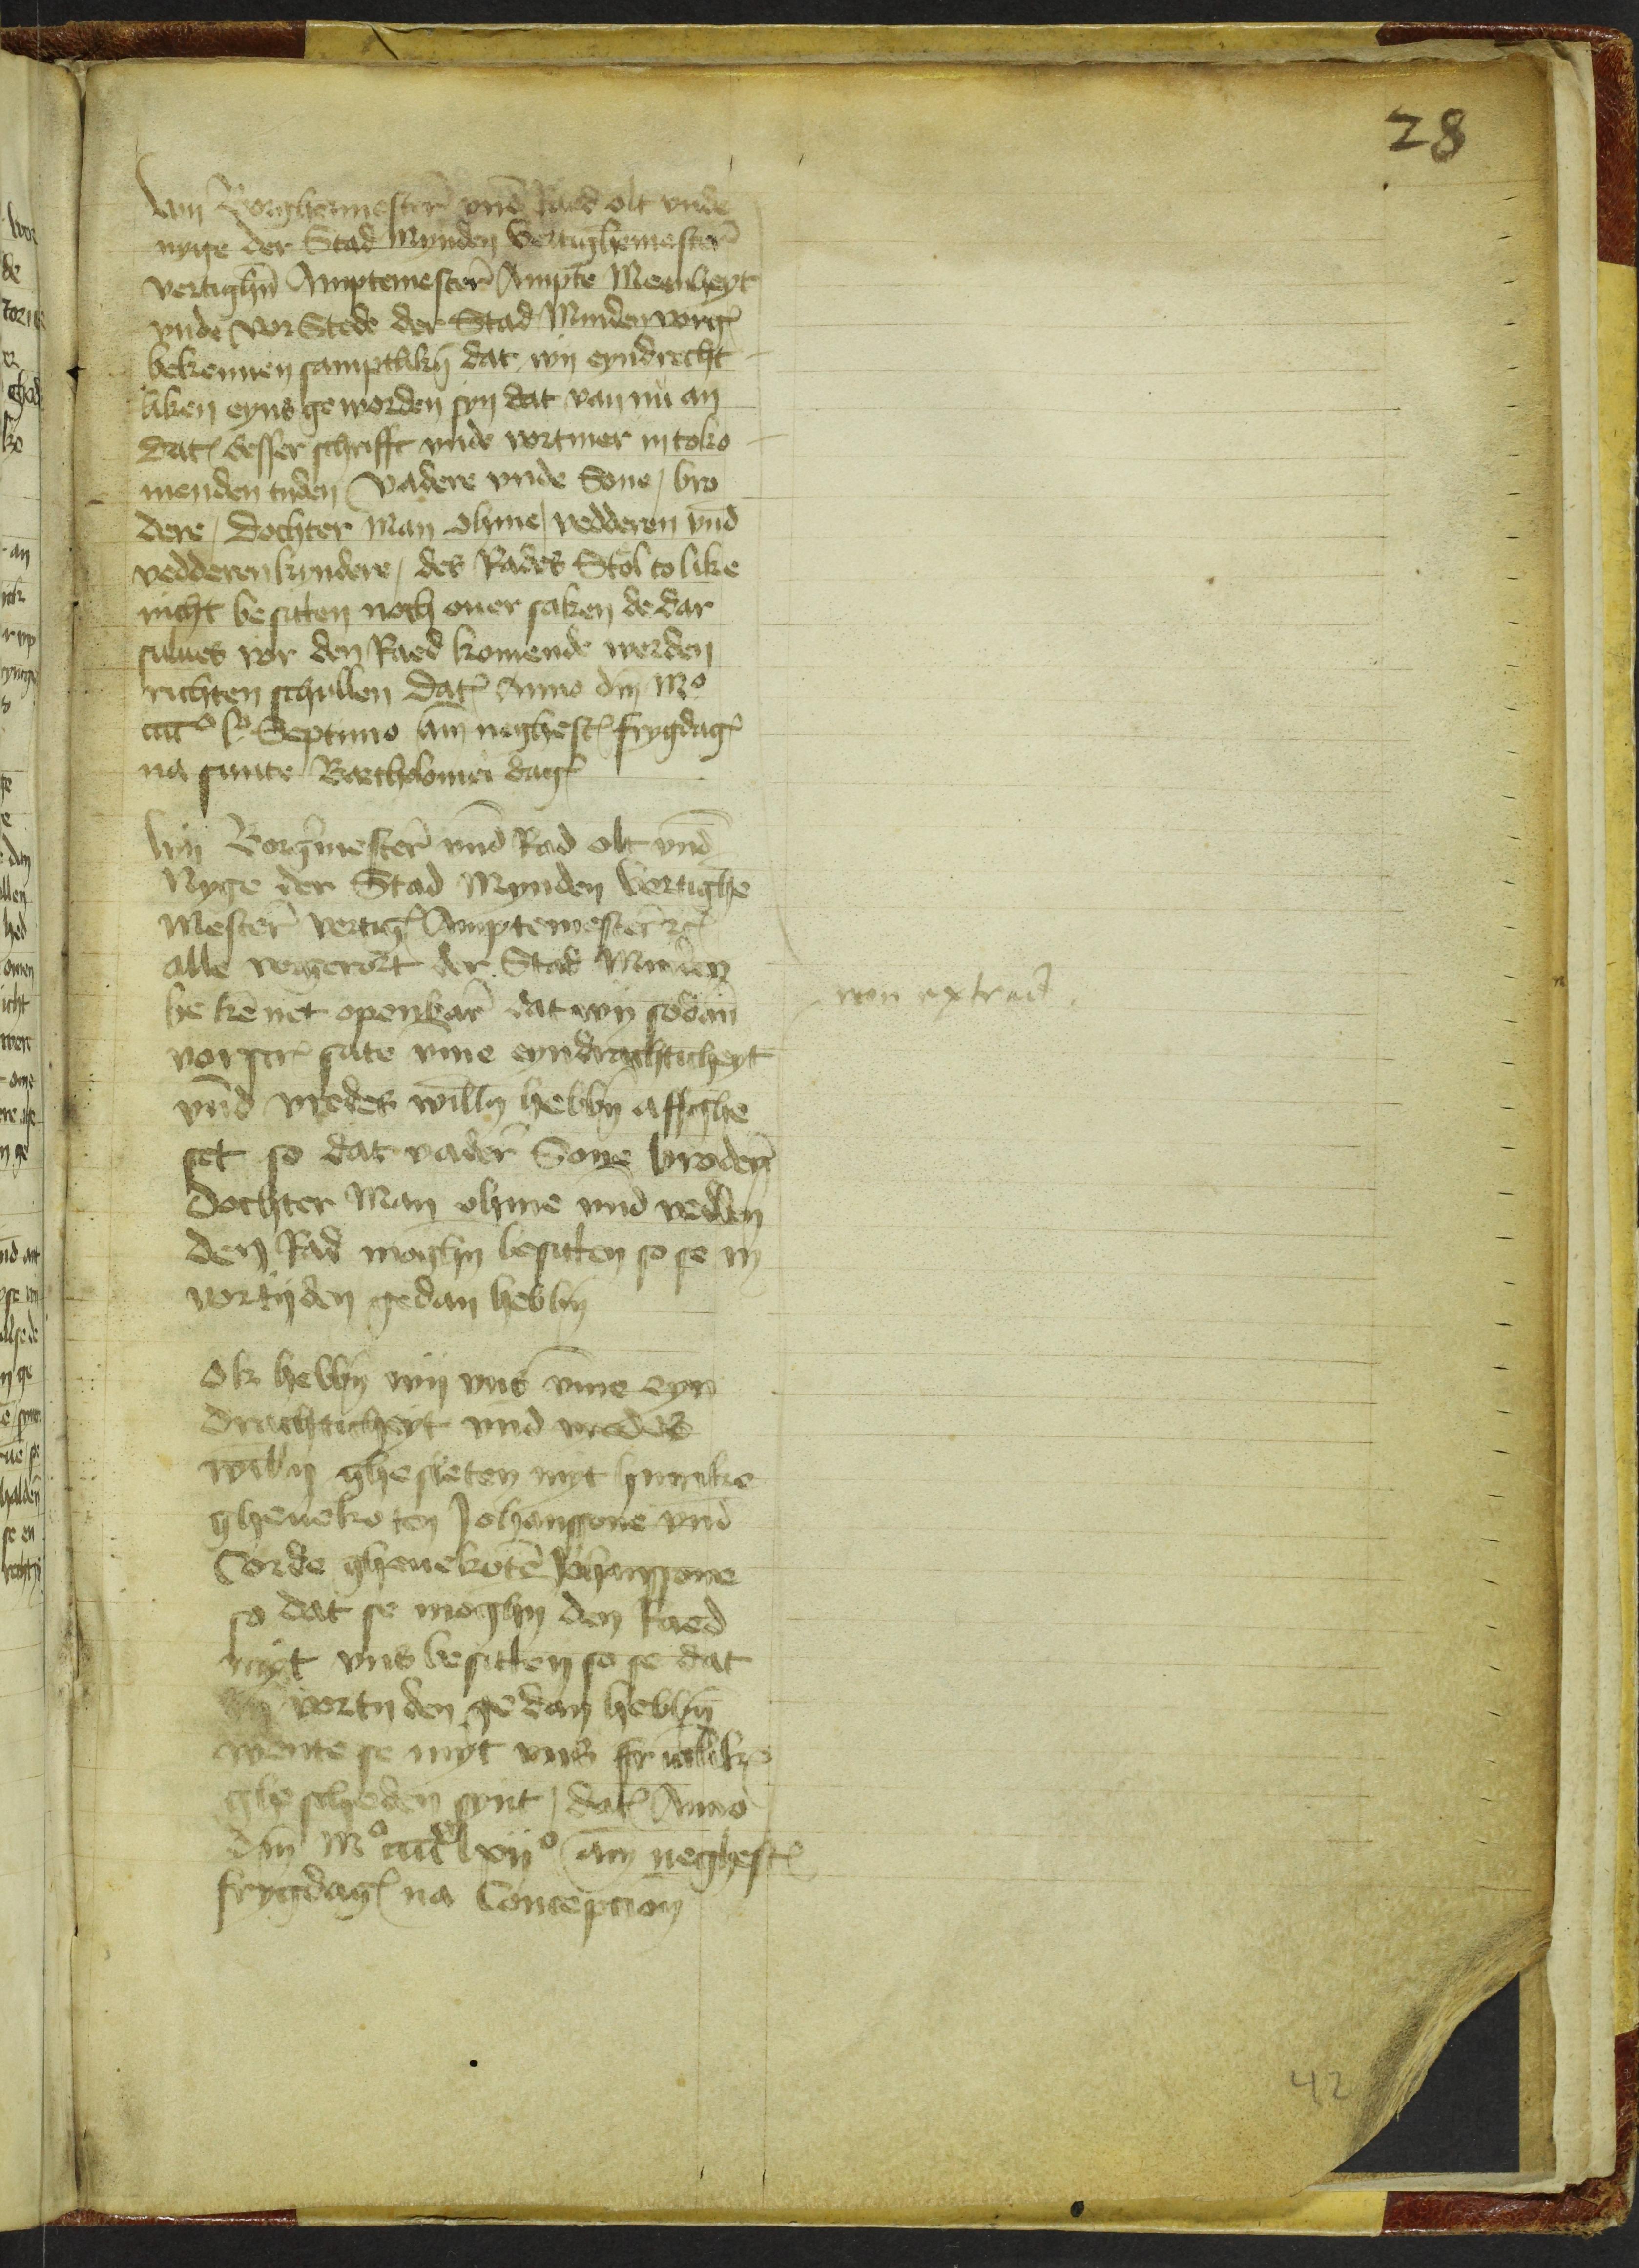 28
Wij Borghermester vnd Raed olt vnde
nyge der Stad Mynden Vertighemester
vertighn Amptemester Ampte Meenheyt
vnde vor Stede der Stad Minden vorg
bekennen samptlikn dat wij eyndrecht
liken eyns geworden syn dat van nu an
Dat desser schrifft vnde vortmer in toko
menden tyden Vadere vnde Sone / bro
dere / Dochter Man ohme / vedderen vnd
vedderenkyndere / des Rades Stol to like
nicht besitten noch ouer saken de dar
sulues vor den Raed komende werden
richten schullen Dat Anno dm Mº
ccccº lº Septimo am neghest frygdag
na sunte Bartholomei dag
Wij Borgmester vnd Rad olt vnd
Nyge der Stad Mynden Vertighe
Mester vertig Amptemester
alle vorgerort der Stad Minden
bekennet openbar dat wij sodan
vorscr sate vme eyndrachticheyt
vnd vredes willn hebbn affghe
set so dat vader Sone broder
Dochter Man ohme vnd vedden
den Rad moghn besitten so se in
vortijden gedan hebbn
non extrad
Ok hebbn wij vns vme eyn
drachticheyt vnd vredes
willn ghesleten myt hinrike
gheuekoten Johanssone vnd
Corde gheuekote Johanssone
so dat se moghn den Raed
myt vns besitten so se dat
in vortyden gedan hebbn
wente se myt vns frutlike
ghescheden synt / dat Anno
dm Mº ccccº lxijº am neghest
frygdag na Conception
42